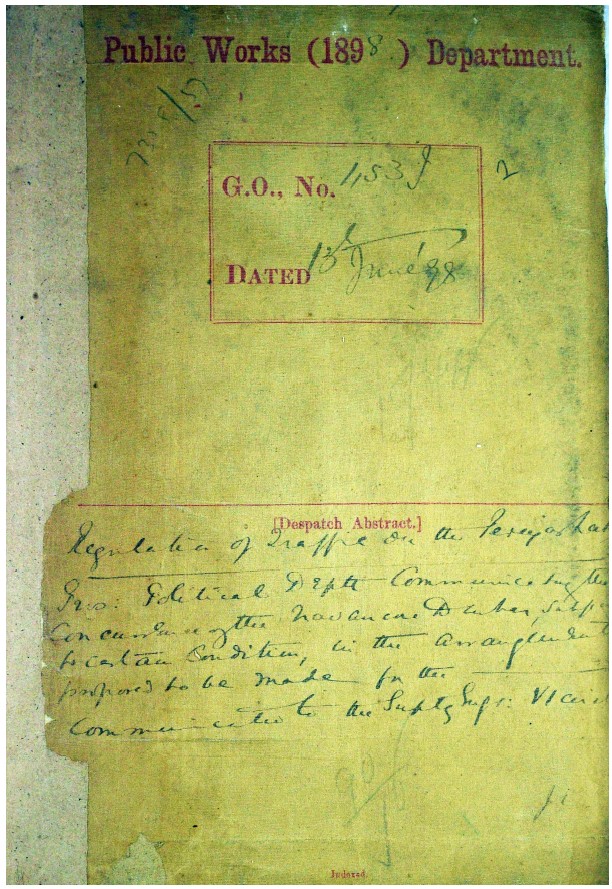 Public Works (1898) Department.
G.O., No. 453 I
DATED 13th June 98
[Despatch Abstract.]
Regulation of Traffic on the Periyar Lake
Political Deptt Communicating the
Concurrence of the Travancore Durbar, subject
to certain Condition, in the arrangement
proposed to be made for the
Communicated to the Suptg Engr: VI Circle
Indexed.